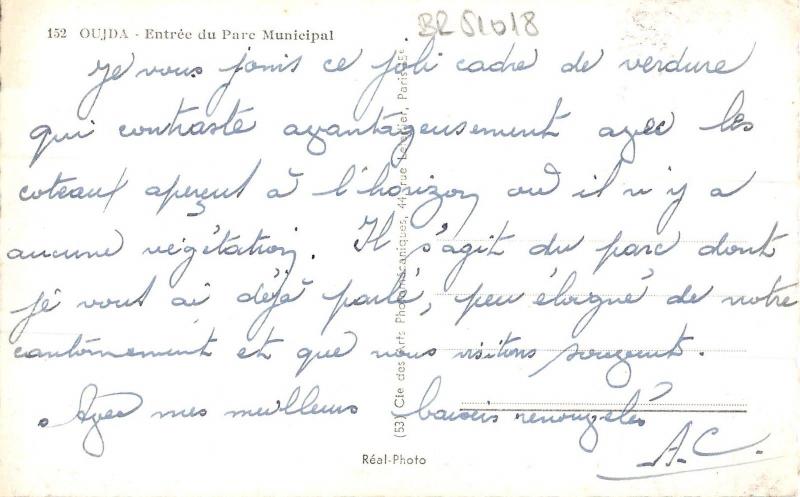 BR 51018
152 OUJDA - Entrée du Parc Municipal
Je vous joins ce joli cadre de verdure
qui contraste avantageusement avec les
coteaux aperçut à l'horizon où il n'y a
aucune végétation. Il s'agit du parc dont
je vous ai déjà parlé, peu éloigné de notre
cantonnement et que nous visitons souvent.
Avec mes meilleurs baisers renouvelés
A.C.
(53) Cie des Arts Photomécaniques, 44, rue Letellier, Paris-15e
Réal-Photo